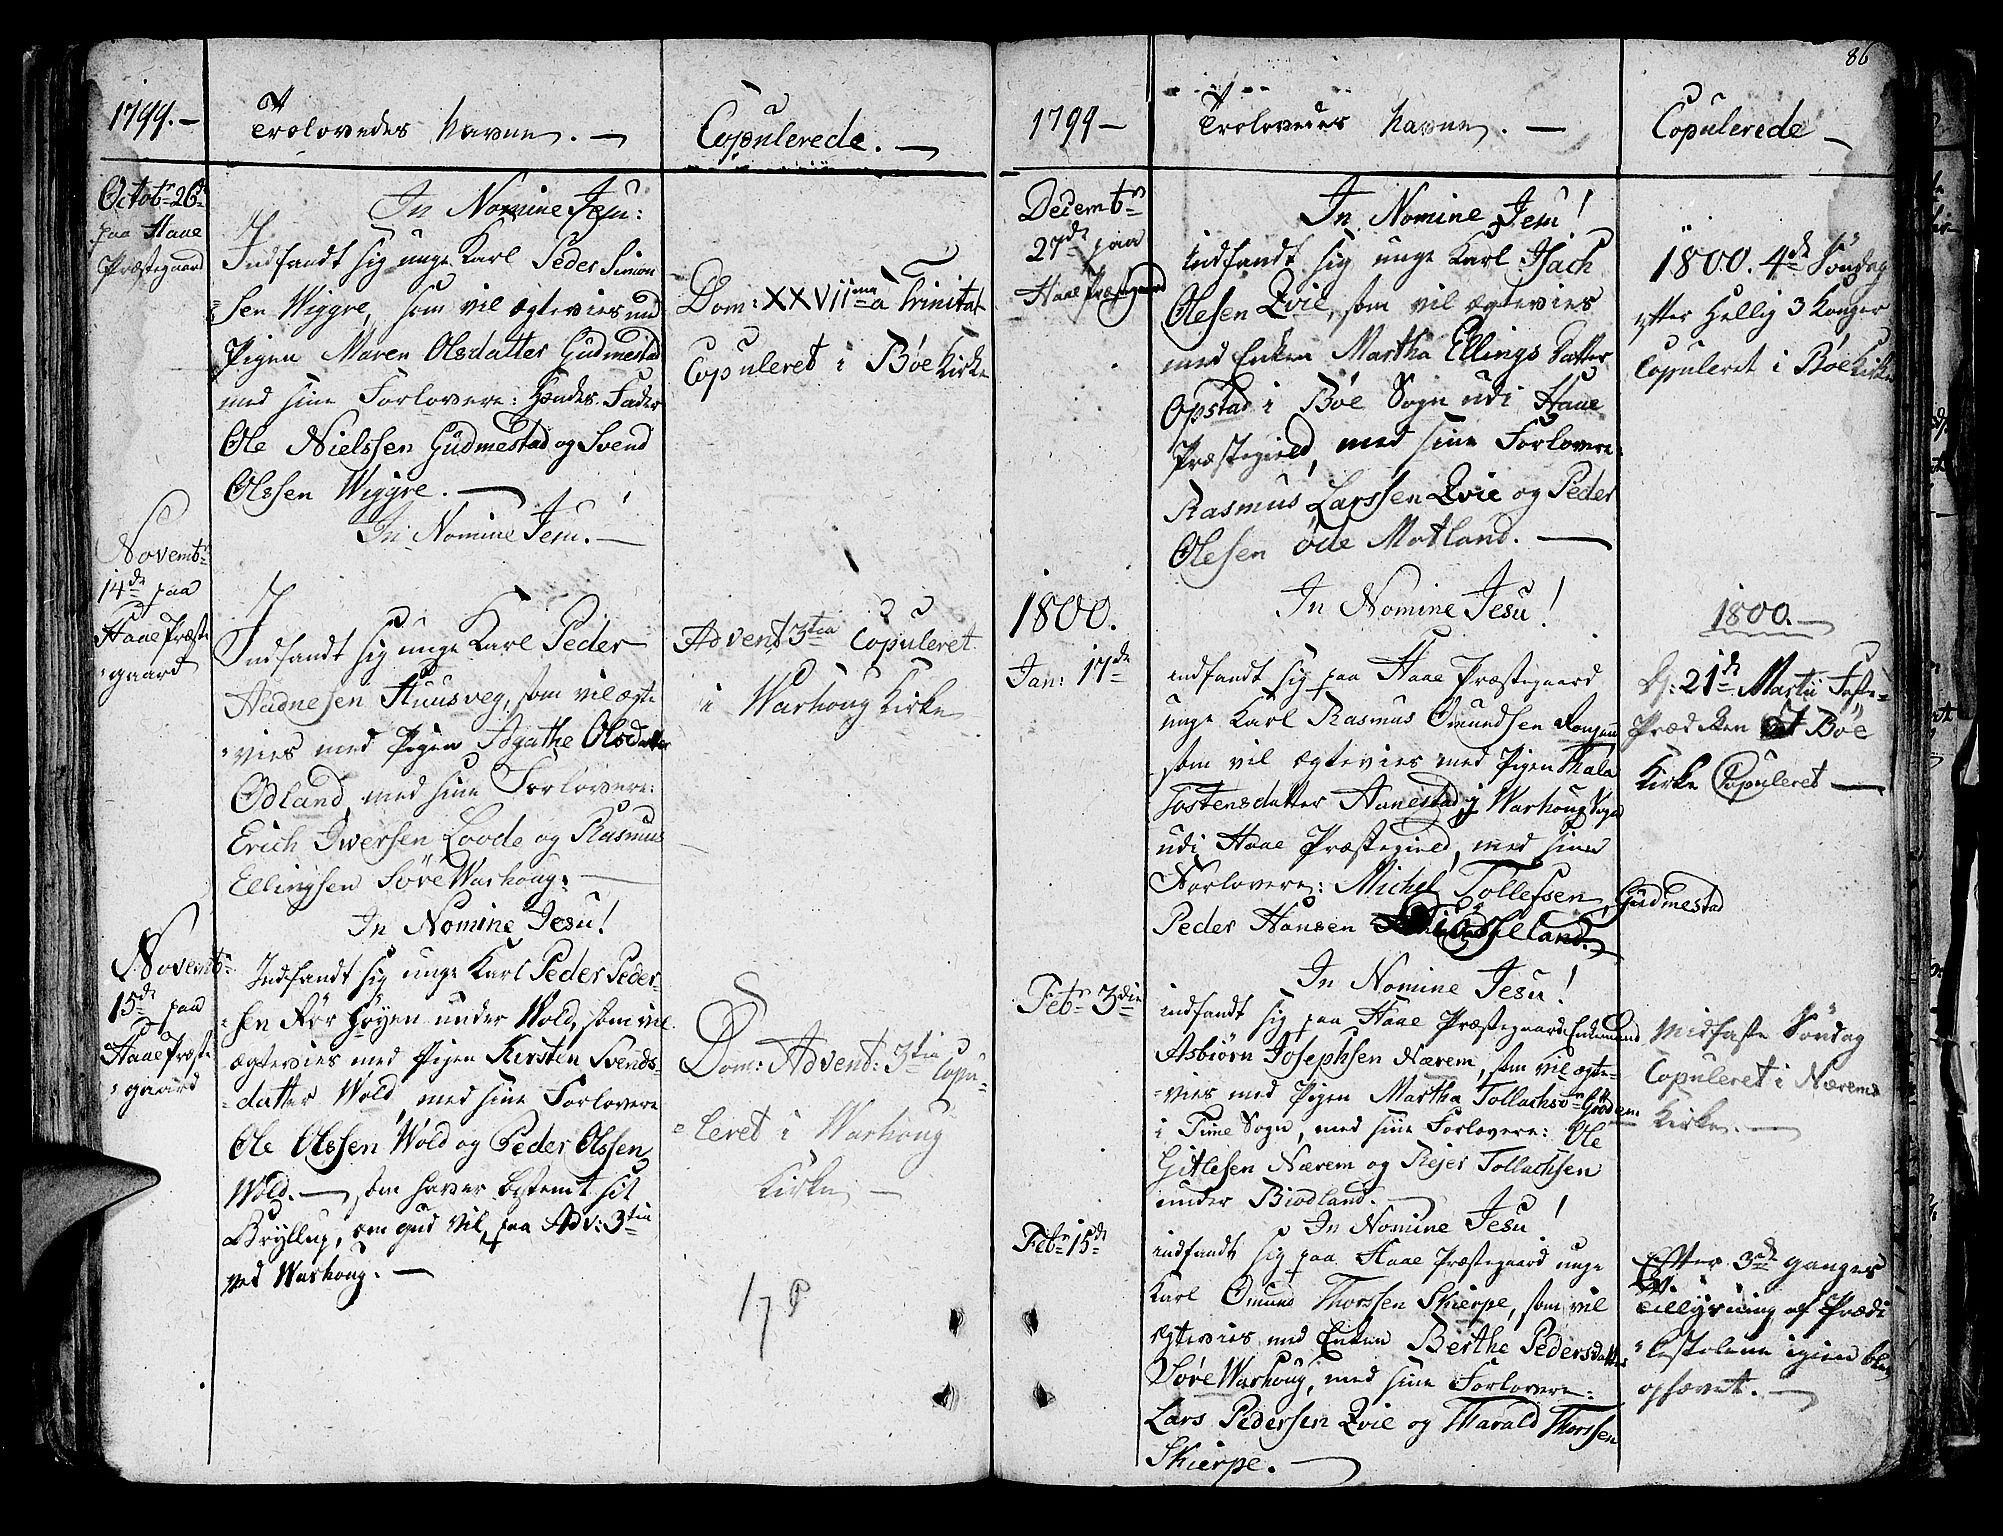 1799.—
Trolovedes Navne. —
Copulerede. —
Octobr 26de
paa Haae
Præstegaard
In Nomine Jesu:
Indfandt sig unge Karl Peder Simon
=sen Wiggre, som vil ægtevies med
Pigen Maren Olsdatter Gudmestad
med sine Forlovere: Hendes Fader
Ole Nielssen Gudmestad og Svend
Olssen Wiggre. —
Dom: XXVIIma à Trinitat
Copuleret i Böe Kirke
Novembr
14de paa
Haae Præste
=gaard
In Nomine Jesu! —
Indfandt sig unge Karl Peder
Aadnesen Stuusveg, som vil ægte
=vies med Pigen Agathe Olsdatter
Ødland, med sine Forlovere:
Erich Iversen Loode og Rasmus
Ellingsen Söre Warhoug. —
Advent 3tia Copuleret
i Warhoug Kirke
Novembr
15de paa
Haae Præste
=gaard
In Nomine Jesu!
Indfandt sig unge Karl Peder Peder-
=sen Rör Höyen under Wold, som vil
ægtevies med Pigen Kirsten Svends-
=datter Wold, med sine Forlovere
Ole Olssen Wold og Peder Olssen
Wold. — som haver bestemt sit
Bryllup, om Gud vil, paa Adv: 3tia
ved Warhoug. —
Dom: Advent: 3tia Copu-
=leret i Warhoug
Kirke —
17 P
86
1799—
Trolovedes Navne. —
Copulerede —
Decembr
27de paa
Haae Præstegaard
In Nomine Jesu!
indfandt sig unge Karl Isach
Olesen Qvie, som vil ægtevies
med Enken Martha Ellings Datter
Opstad i Böe Sogn udi Haae
Præstegield, med sine Forlovere:
Rasmus Larssen Qvie og Peder
Olesen Öde Motland. —
1800. 4de Söndag
efter Hellig 3 Konger
Copuleret i Böe Kirke
1800.
Jan: 17de
In Nomine Jesu!
indfandt sig paa Haae Præstegaard
unge Karl Rasmus Omundsen
som vil ægtevies med Pigen Thala
Tostensdatter Hanestad i Warhoug Sogn
udi Haae Præstegield, med sine
Forlovere: Michel Tollefsen Gudmestad
Peder Hansen
1800. —
D: 21de Martii Faste-
Prædiken Böe
Kirke Copuleret —
Febr 3die
In Nomine Jesu!
indfandt sig paa Haae Præstegaard Enkemand
Asbiörn Josephsen Nærem, som vil ægte-
=vies med Pigen Martha Tollachsdr
i Time Sogn, med sine Forlovere: Ole
Gitlesen Nærem og Rejer Tollachsen
under Biodland. —
Midfaste Söndag
Copuleret i Nærem
Kirke. —
Febr 15de
In Nomine Jesu!
indfandt sig paa Haae Præstegaard unge
Karl Omund Thorssen Skierpe, som vil
ægtevies med Enken Berthe Pedersdatter
Söre Warhoug, med sine Forlovere:
Lars Pedersen Qvie og Harald Thorssen
Skierpe. —
Efter 3de ganges
Tillysning af Prædi
=kestolene igien blev
ophævet. —